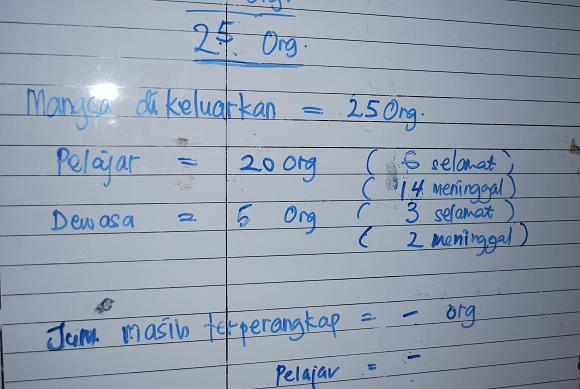 Org.
25 Org.
Mangsa di keluarkan = 25 Org.
Pelajar = 20 Org ( 6 selamat )
( 14 meninggal )
Dewasa = 5 Org ( 3 selamat )
( 2 meninggal )
Jum. masih terperangkap = - org
Pelajar = -